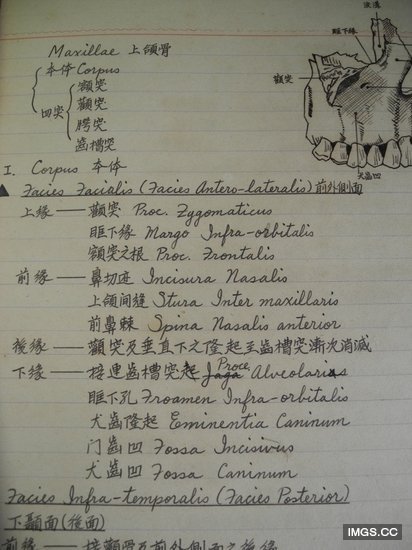 Maxillae 上頜骨
本体 Corpus
四突
額突
顴突
腭突
齒槽突
淚溝
眶下緣
顴突
犬齒凹
I. Corpus 本体
▲ Facies Facialis (Facies Antero-lateralis) 前外側面
上緣 —— 顴突 Proc. Zygomaticus
眶下緣 Margo Infra-orbitalis
額突之根 Proc. Frontalis
前緣 —— 鼻切迹 Incisura Nasalis
上頜间缝 Stura Inter maxillaris
前鼻棘 Spina Nasalis anterior
後緣 —— 顴突及垂直下之隆起至齒槽突漸次消減
下緣 —— 接連齒槽突起 Proce Alveolaris
眶下孔 Froamen Infra-orbitalis
犬齒隆起 Eminentia Caninum
门齒凹 Fossa Incisivus
犬齒凹 Fossa Caninum
Facies Infra-temporalis (Facies Posterior)
下顳面(後面)
前緣 —— 接顴骨及前外側面之後緣
IMGS.CC